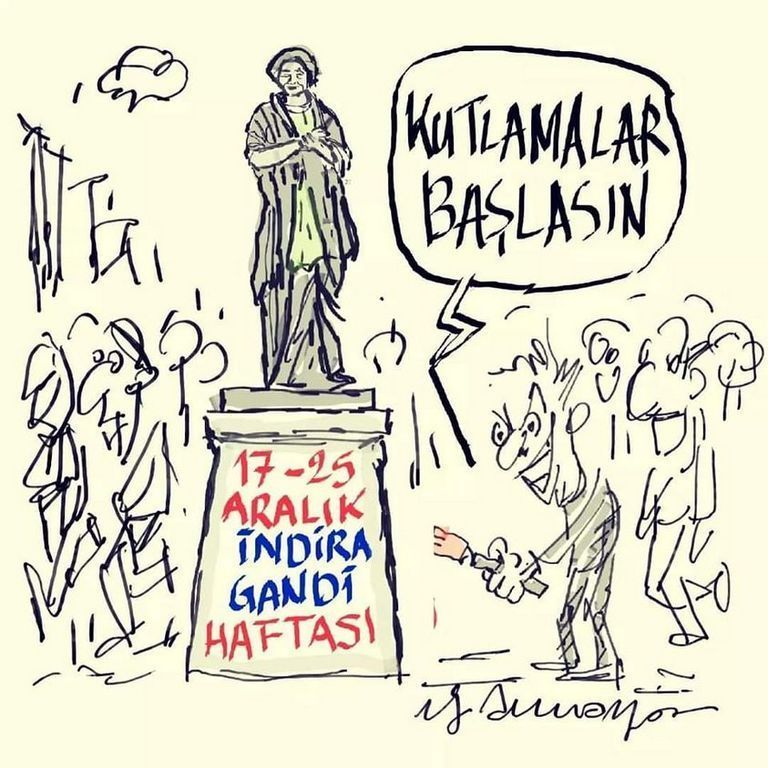 KUTLAMALAR
BAŞLASIN
17-25
ARALIK
İNDİRA
GANDİ
HAFTASI